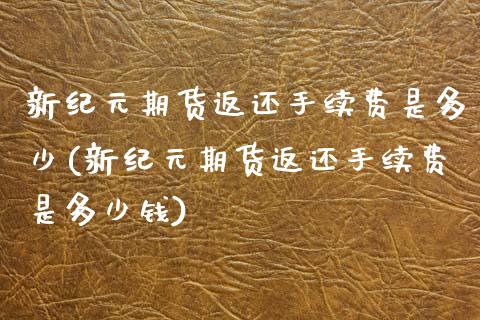 新纪元期货返还手续费是多
少(新纪元期货返还手续费
是多少钱)